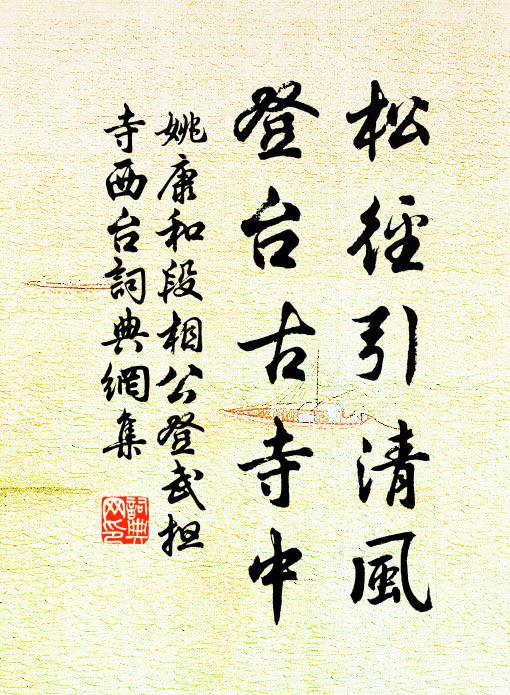 松徑引清風
登台古寺中
姚康和段相公登武担
寺西台詞典網集
詞典网印